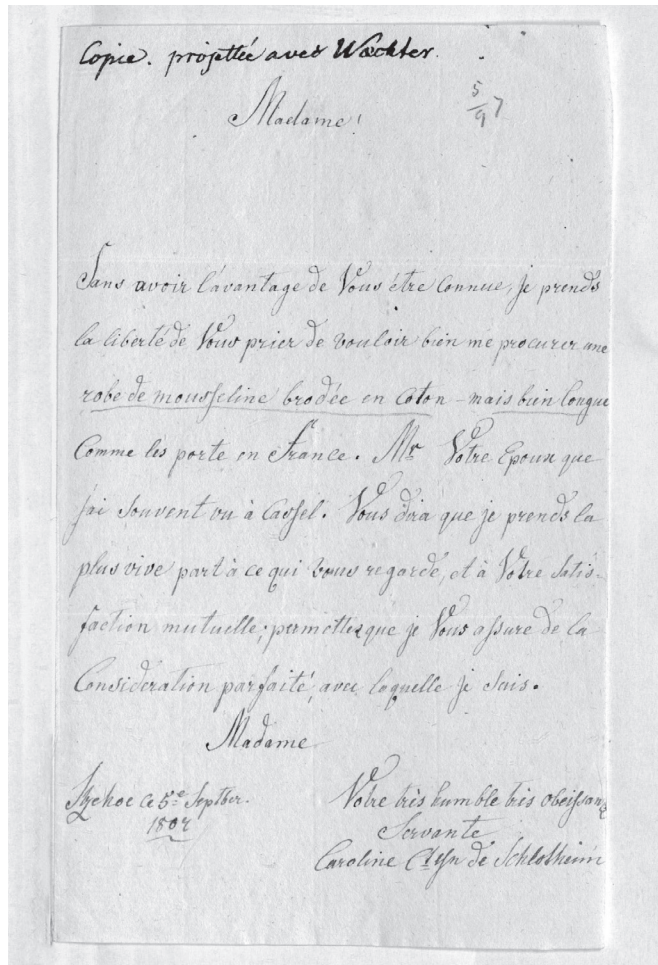 Copie. projettée avec Wæchter.
5/9 7
Madame!
Sans avoir l'avantage de Vous être Connue, je prends
la liberté de Vous prier de vouloir bien me procurer une
robe de mousseline brodée en Coton – mais bien longue
Comme les porte en France. Mr Votre Epoux que
j'ai souvent vu à Cassel. Vous dira que je prends la
plus vive part à ce qui Vous regarde, et à Votre Satis-
faction mutuelle; permettez que je Vous assure de la
Considération parfaite, avec laquelle je suis.
Madame
Itzehoe ce 5e Septber.
Votre tris humble tris obeissante
Servante
Caroline de Schlotheim